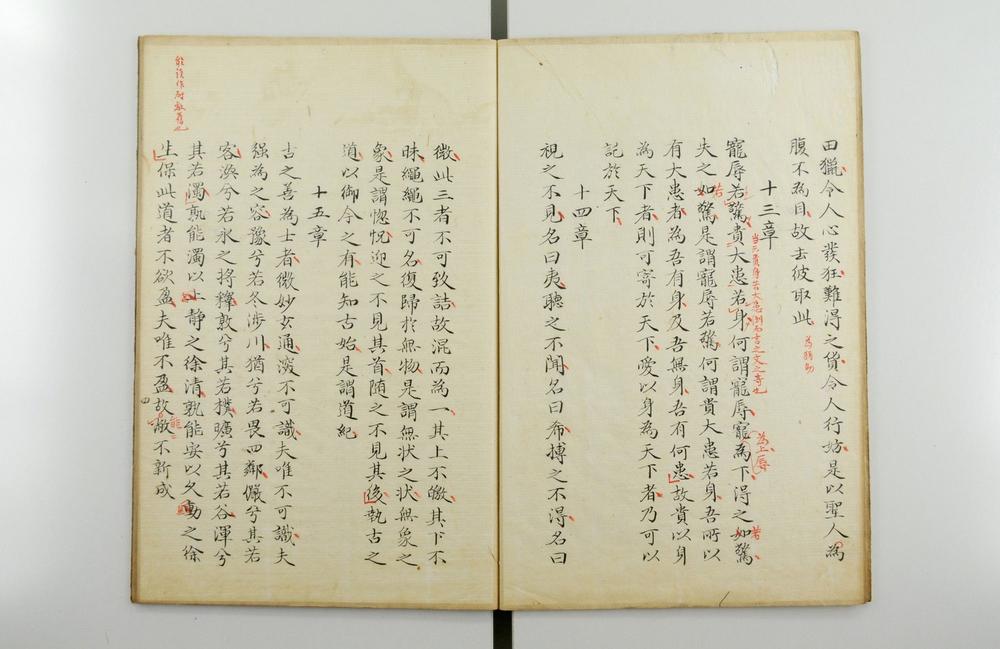 田獵令人心發狂難得之貨令人行妨是以聖人為
腹不為目故去彼取此
十三章
寵辱若驚貴大患若身何謂寵辱寵為下得之如驚
當云貴身若大患倒而言之文之奇也
為上辱
若
失之如驚是謂寵辱若驚何謂貴大患若身吾所以
若
有大患者為吾有身及吾無身吾有何患故貴以身
為天下者則可寄於天下愛以身為天下者乃可以
記於天下
十四章
視之不見名曰夷聽之不聞名曰希搏之不得名曰
微此三者不可致詰故混而為一其上不皦其下不
昧繩繩不可名復歸於無物是謂無状之状無象之
象是謂惚怳迎之不見其首随之不見其後執古之
道以御今之有能知古始是謂道紀
十五章
古之善為士者微妙玄通深不可識夫唯不可識夫
强為之容豫兮若冬涉川猶兮若畏四鄰儼兮其若
客渙兮若氷之将釋敦兮其若樸曠兮其若谷渾兮
其若濁孰能濁以上静之徐清孰能安以久動之徐
生保此道者不欲盈夫唯不盈故敝不新成
能